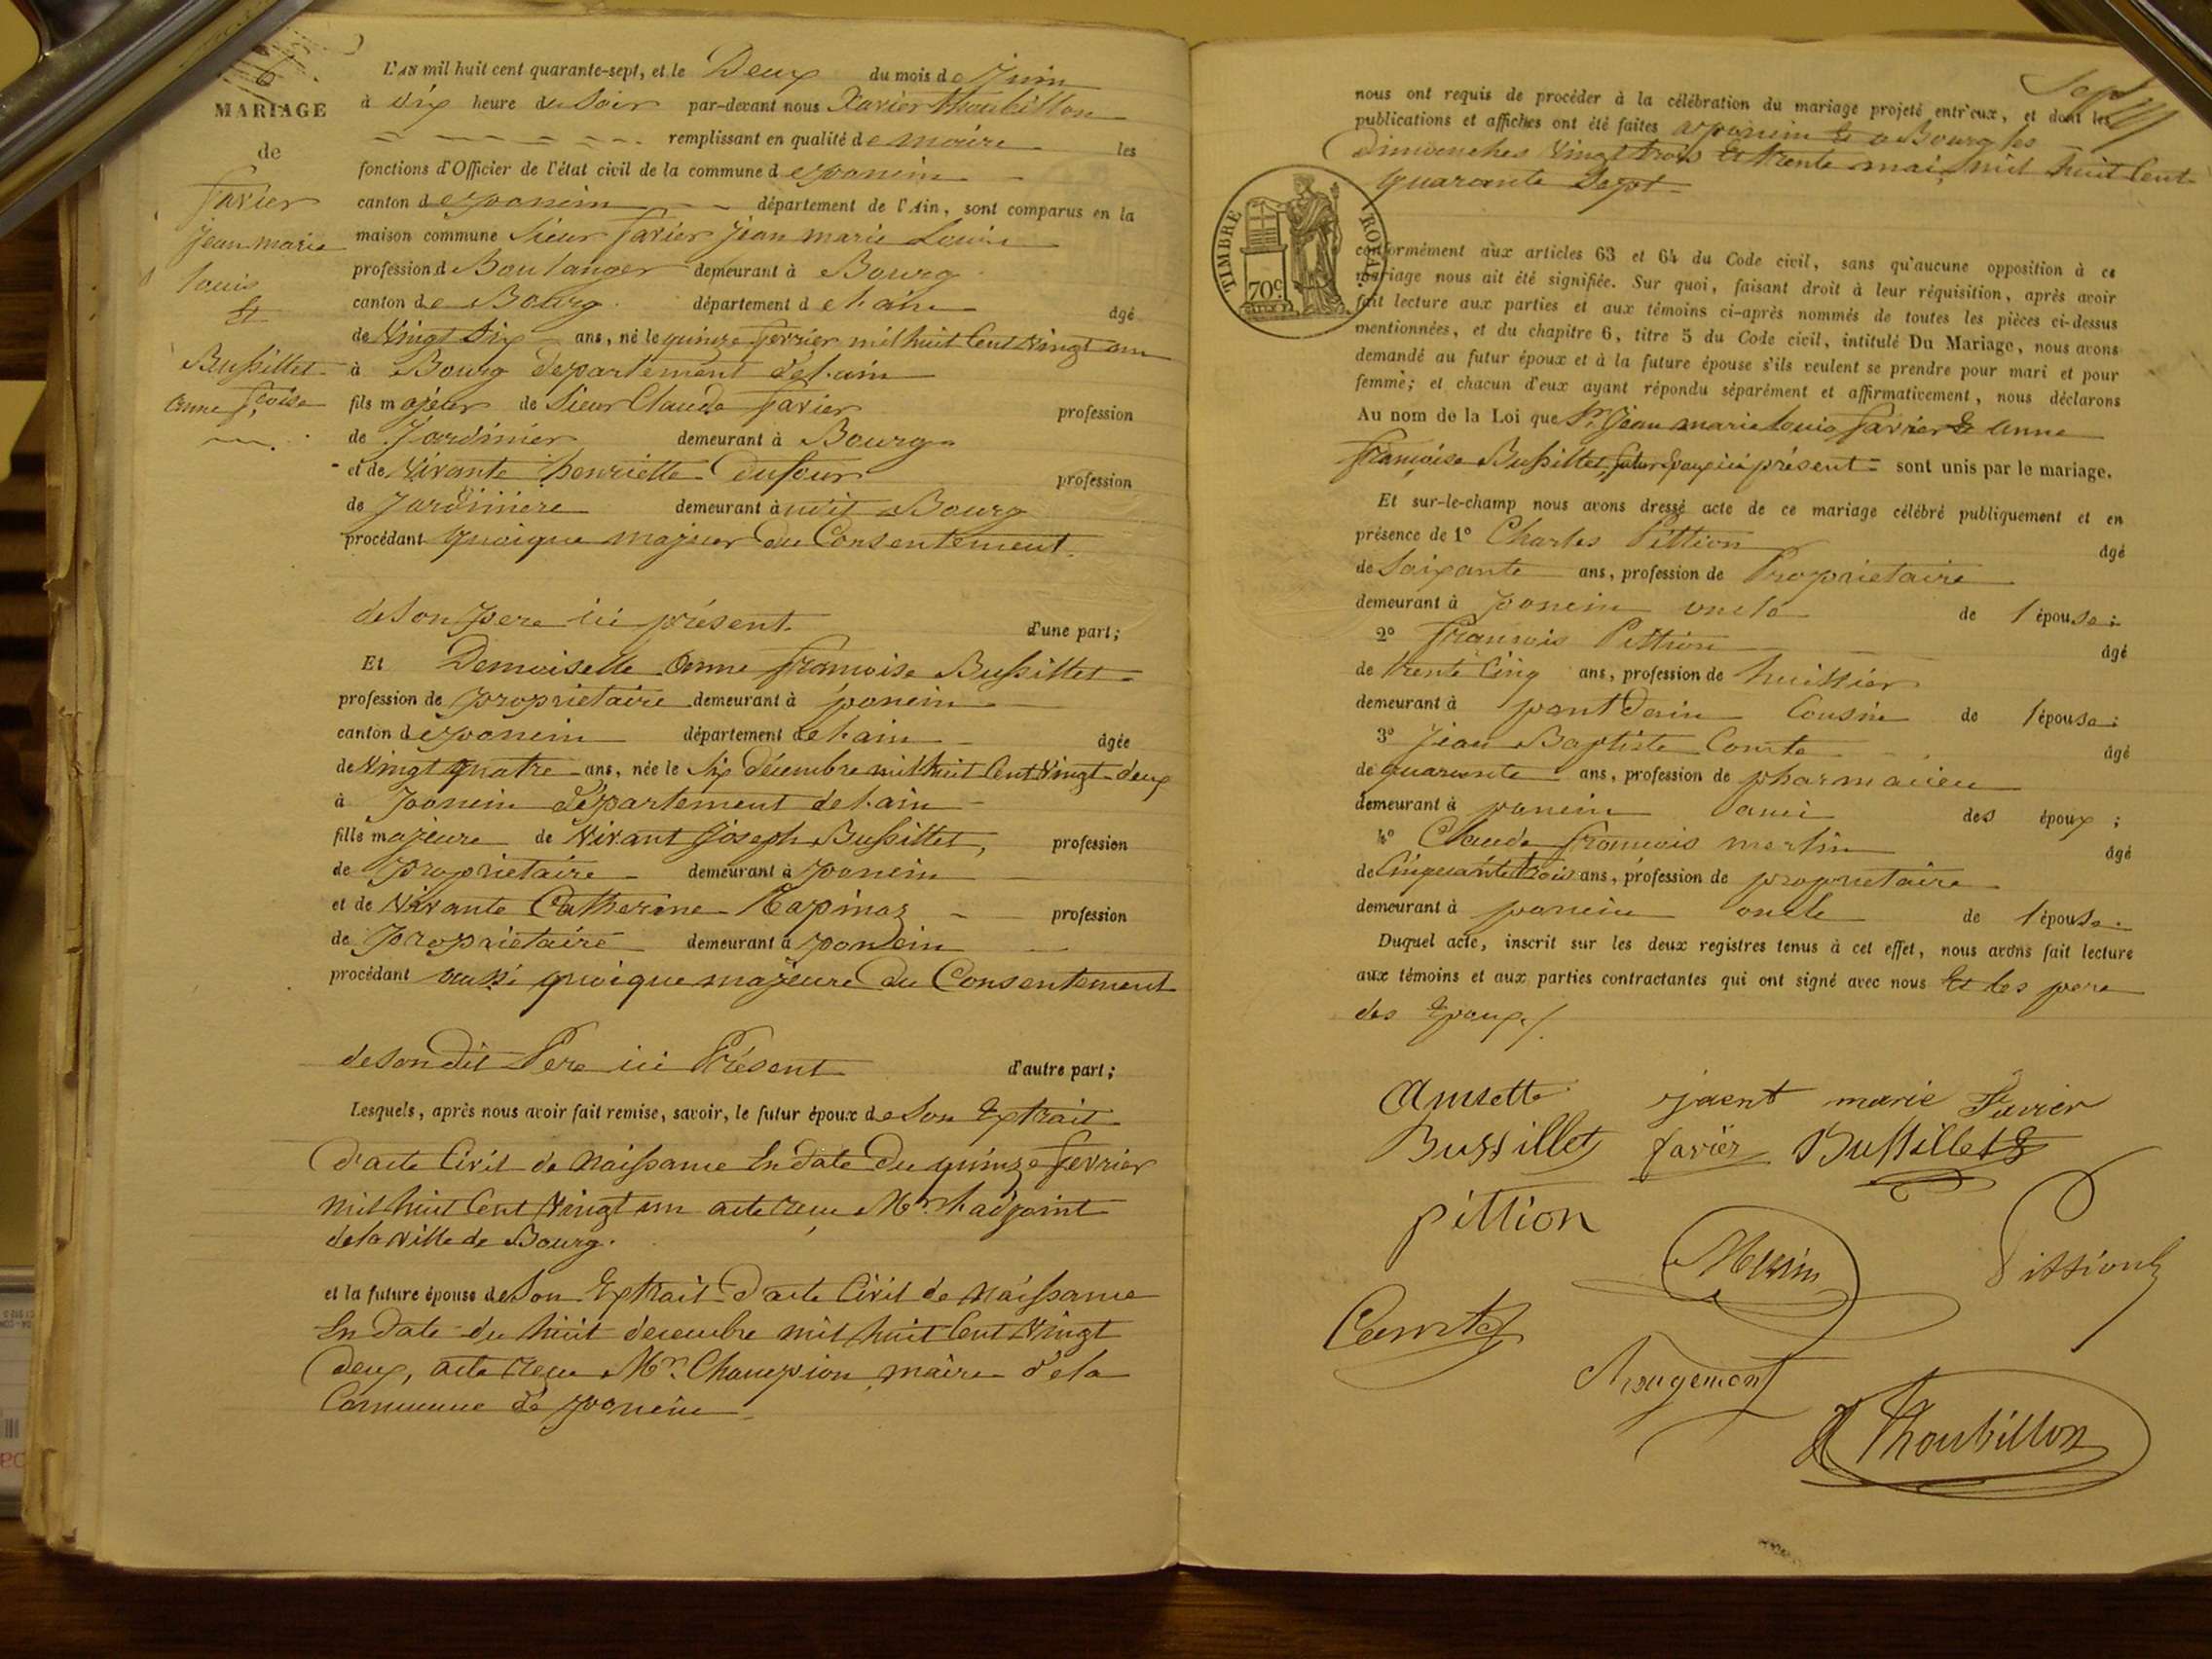 6
MARIAGE
de
favier
jean marie
louis
Et
Bussillet
anne fcoise
L'AN mil huit cent quarante-sept, et le Deux du mois de Juin
à Six heure du Soir par-devant nous Xavier Thoubillon
remplissant en qualité de maire les
fonctions d'Officier de l'état civil de la commune de poncin
canton de poncin département de l'Ain, sont comparus en la
maison commune Sieur favier jean marie Louis
profession d Boulanger demeurant à Bourg
canton de Bourg département de l'ain âgé
de Vingt Six ans, né le quinze fevrier mil huit Cent Vingt un
à Bourg département de l'ain
fils majeur de Sieur Claude favier profession
de Jardinier demeurant à Bourg
et de Vivante henriette Dufour profession
de Jardiniere demeurant à udit Bourg
procédant quoique majeur du Consentement
de Son pere ici présent d'une part;
Et Demoiselle Anne francoise Bussillet
profession de propriétaire demeurant à poncin
canton de poncin département de l'ain âgée
de Vingt quatre ans, née le Six décembre mil huit Cent Vingt deux
à poncin département de l'ain
fille majeure de Vivant Joseph Bussillet, profession
de propriétaire demeurant à poncin
et de Vivante Catherine Rapinaz profession
de propriétaire demeurant à poncin
procédant aussi quoique majeure du Consentement
de Son dit Pere ici Présent d'autre part;
Lesquels, après nous avoir fait remise, savoir, le futur époux de Son Extrait
d'acte Civil de Naissance En date du quinze fevrier
mil huit Cent Vingt un acte recu Mr. l'adjoint
de la Ville de Bourg.
et la future épouse de Son Extrait d'acte Civil de Naissance
En date du huit decembre mil huit Cent Vingt
Deux, acte recu Mr. Champion maire de la
Commune de poncin
Sept
nous ont requis de procéder à la célébration du mariage projeté entr'eux, et dont les
publications et affiches ont été faites a poncin Et a Bourg les
Dimanches Vingt trois Et trente mai mil huit Cent
quarante Sept
TIMBRE ROYAL
70c
conformément aux articles 63 et 64 du Code civil, sans qu'aucune opposition à ce
mariage nous ait été signifiée. Sur quoi, faisant droit à leur réquisition, après avoir
fait lecture aux parties et aux témoins ci-après nommés de toutes les pièces ci-dessus
mentionnées, et du chapitre 6, titre 5 du Code civil, intitulé Du Mariage, nous avons
demandé au futur époux et à la future épouse s'ils veulent se prendre pour mari et pour
femme; et chacun d'eux ayant répondu séparément et affirmativement, nous déclarons
Au nom de la Loi que Sr. Jean marie louis favier Et Anne
françoise Bussillet, futur Epoux ici présent sont unis par le mariage.
Et sur-le-champ nous avons dressé acte de ce mariage célébré publiquement et en
présence de 1° Charles Pittion âgé
de Soixante ans, profession de Propriétaire
demeurant à poncin oncle de l'épouse;
2° francois Pittion âgé
de trente Cinq ans, profession de huissier
demeurant à pont dain Cousin de l'épouse;
3° Jean Baptiste Comte âgé
de quarante ans, profession de pharmacien
demeurant à poncin ami des époux;
4° Claude francois martin âgé
de Cinquante trois ans, profession de propriétaire
demeurant à poncin oncle de l'épouse.
Duquel acte, inscrit sur les deux registres tenus à cet effet, nous avons fait lecture
aux témoins et aux parties contractantes qui ont signé avec nous Et les pere
des Epoux./.
Annette jaent marie Favier
Bussillet favier Bussillet
pittion
Pittion
Comte
Rougemont
X Thoubillon